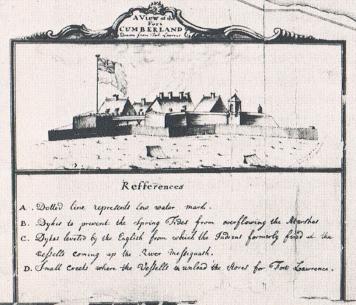 A View of the
Fort
CUMBERLAND
Drawn from Fort Lawrence
Refferences
A. Dotted line represents low water mark.
B. Dykes to prevent the Spring Tides from overflowing the Marshes
C. Dykes leveled by the English from which the Indians formerly fired at the
Vessells coming up the River Mesiguash.
D. Small Creek where the Vessells unload the Stores for Fort Lawrence.